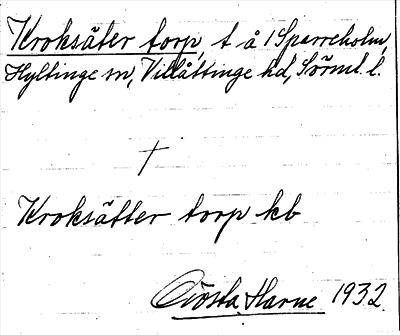 Kroksäter torp, t å 1 Sparreholm,
Hyltinge sn, Villåttinge hd, Sörml. l.
†
Kroksätter torp kb
Gösta Harne 1932.